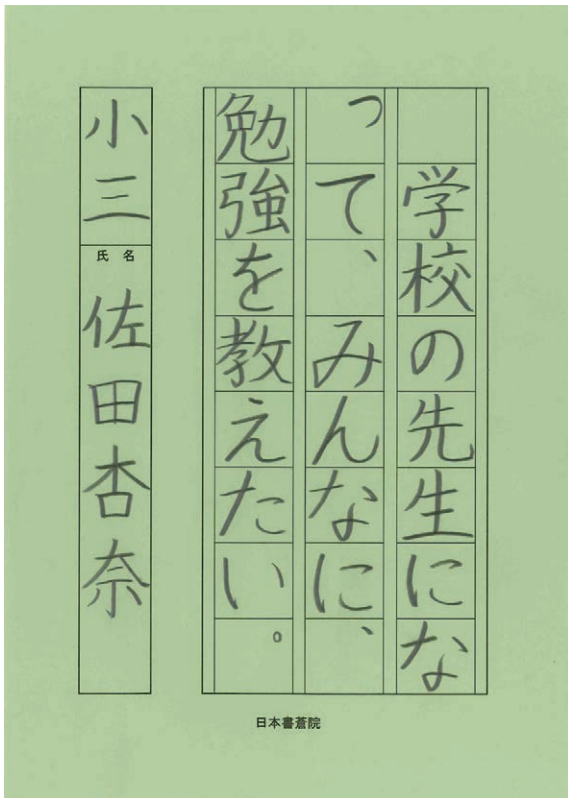 学校の先生にな
って、みんなに、
勉強を教えたい。
小三
氏名
佐田杏奈
日本書蒼院